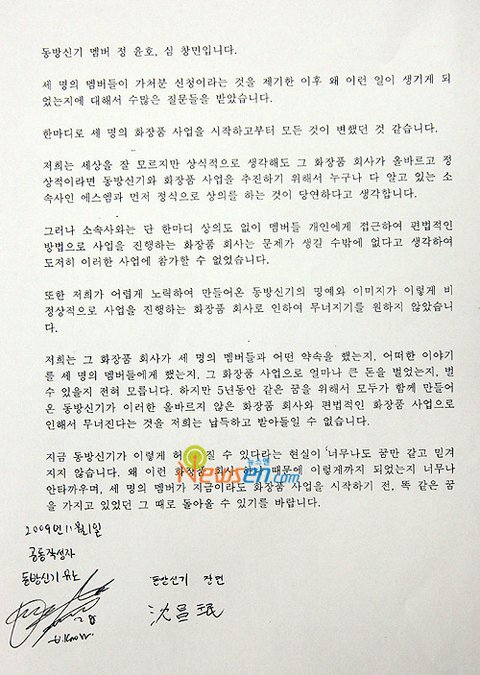 동방신기 멤버 정 윤호, 심 창민입니다.
세 명의 멤버들이 가처분 신청이라는 것을 제기한 이후 왜 이런 일이 생기게 되
었는지에 대해서 수많은 질문들을 받았습니다.
한마디로 세 명의 화장품 사업을 시작하고부터 모든 것이 변했던 것 같습니다.
저희는 세상을 잘 모르지만 상식적으로 생각해도 그 화장품 회사가 올바르고 정
상적이라면 동방신기와 화장품 사업을 추진하기 위해서 누구나 다 알고 있는 소
속사인 에스엠과 먼저 정식으로 상의를 하는 것이 당연하다고 생각합니다.
그러나 소속사와는 단 한마디 상의도 없이 멤버들 개인에게 접근하여 편법적인
방법으로 사업을 진행하는 화장품 회사는 문제가 생길 수밖에 없다고 생각하여
도저히 이러한 사업에 참가할 수 없었습니다.
또한 저희가 어렵게 노력하여 만들어온 동방신기의 명예와 이미지가 이렇게 비
정상적으로 사업을 진행하는 화장품 회사로 인하여 무너지기를 원하지 않았습니
다.
저희는 그 화장품 회사가 세 명의 멤버들과 어떤 약속을 했는지, 어떠한 이야기
를 세 명의 멤버들에게 했는지, 그 화장품 사업으로 얼마나 큰 돈을 벌었는지, 벌
수 있을지 전혀 모릅니다. 하지만 5년동안 같은 꿈을 위해서 모두가 함께 만들어
온 동방신기가 이러한 올바르지 않은 화장품 회사와 편법적인 화장품 사업으로
인해서 무너진다는 것을 저희는 납득하고 받아들일 수 없습니다.
지금 동방신기가 이렇게 질 수 있다라는 현실이 너무나도 꿈만 같고 믿겨
지지 않습니다. 왜 이런 때문에 이렇게까지 되었는지 너무나
안타까우며, 세 명의 멤버가 지금이라도 화장품 사업을 시작하기 전, 똑 같은 꿈
을 가지고 있었던 그 때로 돌아올 수 있기를 바랍니다.
뉴스엔
Newsen.com
2009년 11월 1일
공동작성자
동방신기 유노 동방신기 창민
U.Know. 沈昌珉